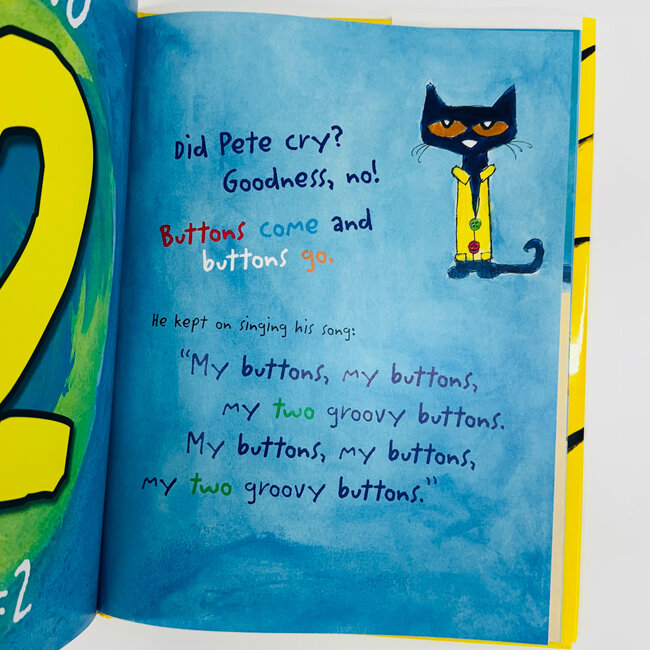 2
=2
Did Pete cry?
Goodness, no!
Buttons come and
buttons go.
He kept on singing his song:
“My buttons, my buttons,
my two groovy buttons.
My buttons, my buttons,
my two groovy buttons.”